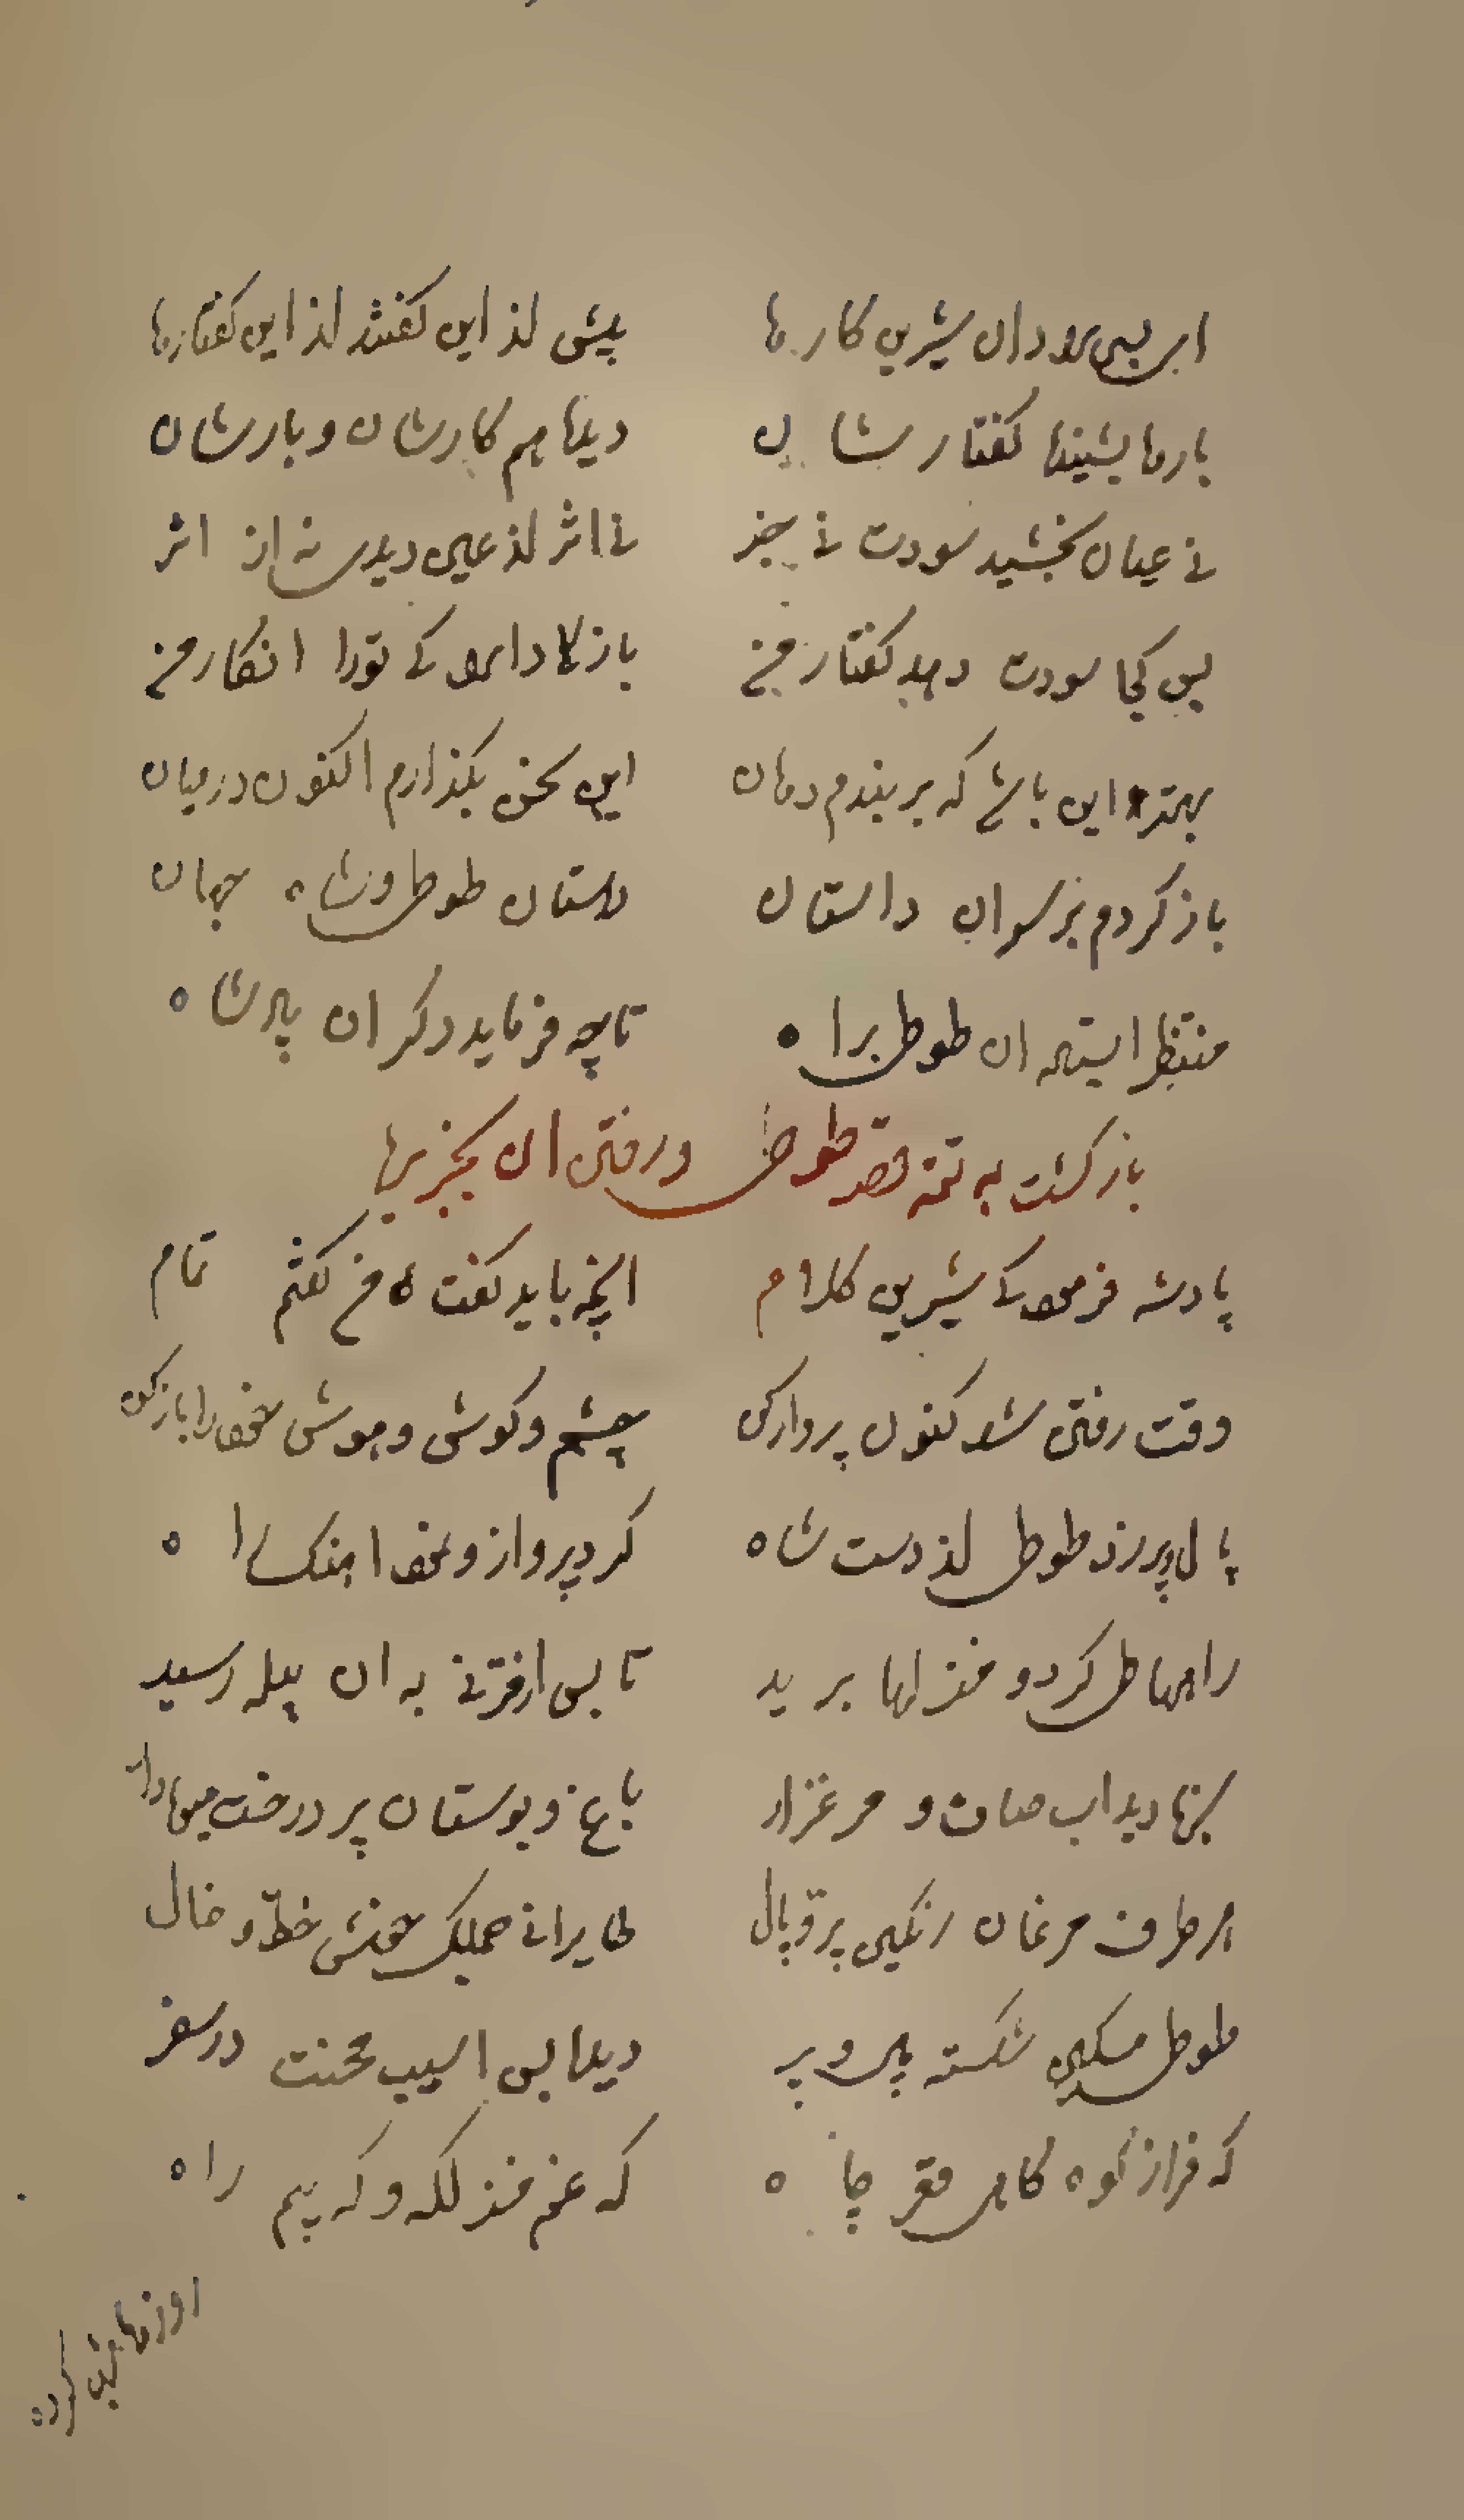 ای بسی مردان شیرین کارها پیش از این گفتند از این گفتارها
بارها بشنیدۀ گفتارشان دیدۀ هم کارشان و بارشان
نی عیان بخشید سودت نی خبر نی اثر از عین دیدی نه از اثر
پس کجا سودت دهد گفتار من باز کاداری تو را انکار من
بهتر این باشد که بر بندم دهان این سخن بگذارم اکنون در میان
باز کردم بر سر ان داستان داستان طوطی و شاه جهان
منتظر ایستاده ان طوطی براه تا چه فرماید دگر ان پادشاه
بازگشت به تتمه قصه طوطی و رفتن ان بجزیرها
پادشه فرمود کی شیرین کلام انچه باید گفت من گفتم تمام
وقت رفتن شد کنون پرواز کن چشم و گوش و هوش خود را باز کن
بال و پر زد طوطی از دست شاه کرد پرواز و نمود اهنک راه
راهها طی کرد و منزلها برید تا پس از قرنی به ان بیله رسید
سبزها دید اب صاف و مرغزار باغ و بوستان پر درخت میوه دار
هر طرف مرغان رنگین پر و بال طایرانی جملگی خوش خط و خال
طوطی مسکین شکسته بال و پر دیده بس اسیب محنت در سفر
که فراز کوه گاهی قعر چاه که غم منزلگه و که بیم راه